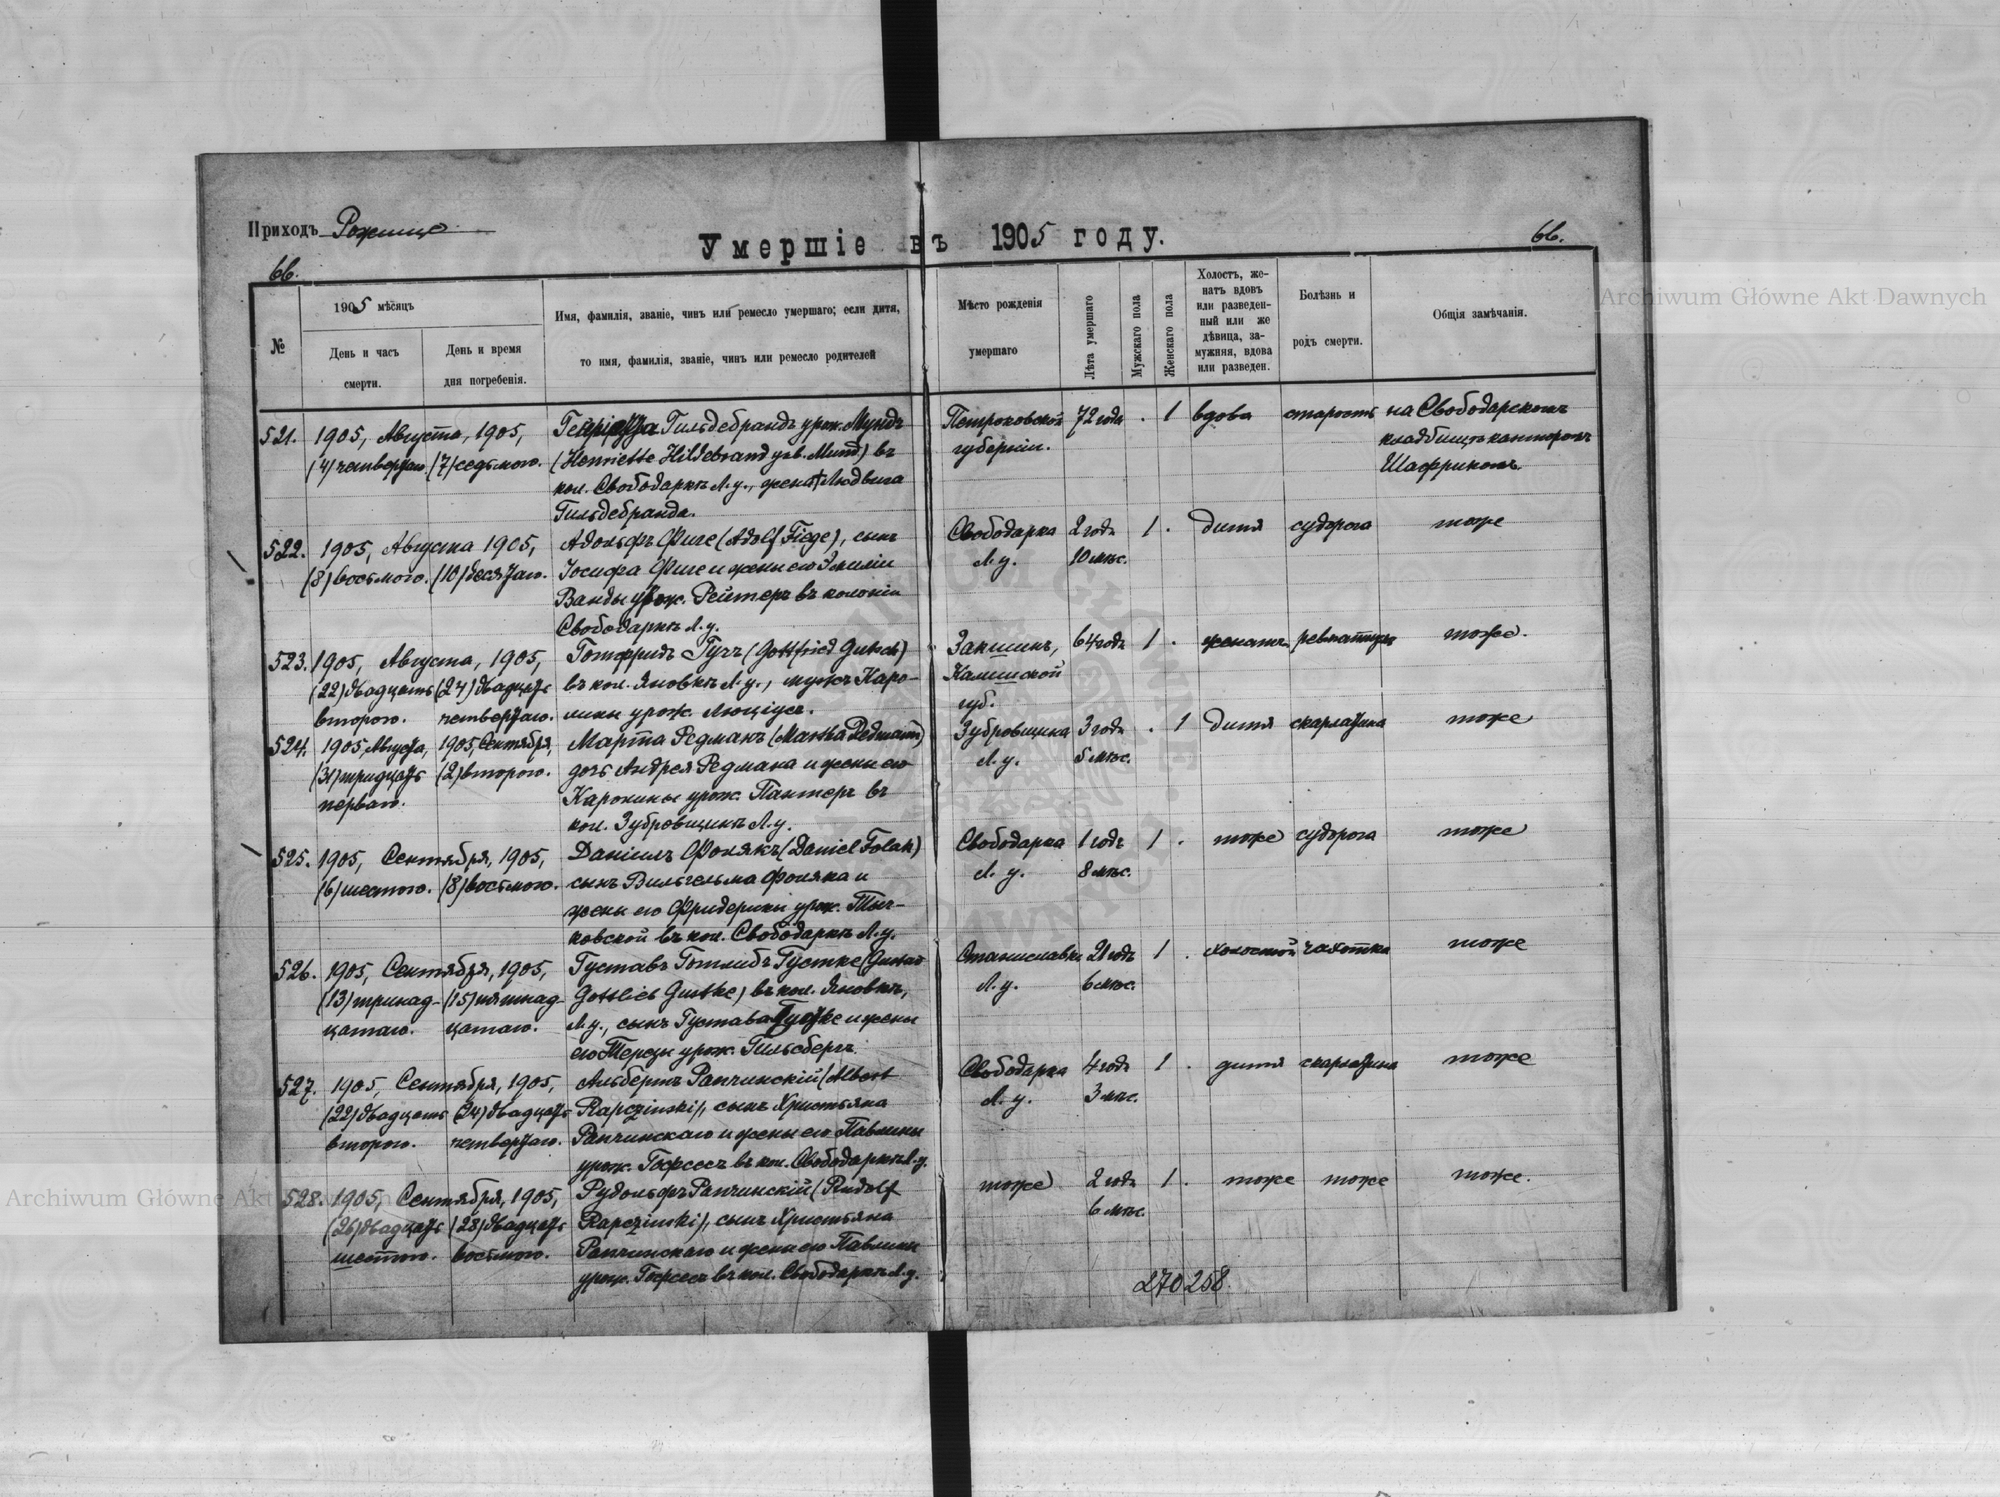 Приходъ Рожище
Умершіе въ 1905 году.
66.
66.
№
1905 мѣсяцъ
День и часъ
смерти.
День и время
дня погребенія.
Имя, фамилія, званіе, чинъ или ремесло умершаго; если дитя,
то имя, фамилія, званіе, чинъ или ремесло родителей
Мѣсто рожденія
умершаго
Лѣта умершаго
Мужскаго пола
Женскаго пола
Холостъ, же-
натъ вдовъ
или разведен-
ный или же
дѣвица, за-
мужняя, вдова
или разведен.
Болѣзнь и
родъ смерти.
Общія замѣчанія.
521. 1905, Августа, 1905,
(4) четвертаго (7) седьмого.
Генріетта Гильдебрандъ урож. Мундъ
(Henriette Hildebrand geb. Mund) въ
кол. Свободаркѣ Л.у., жена Людвига
Гильдебранда.
Петроковской
губерніи.
72 года . 1 вдова старость на Свободарскомъ
кладбищѣ канторомъ
Шафрикомъ.
522. 1905, Августа 1905,
(8) восьмого. (10) десятаго.
Адольфъ Фиге (Adolf Fiege), сынъ
Іосифа Фиге и жены его Эмиліи
Ванды урож. Рейтеръ въ колоніи
Свободаркѣ Л.у.
Свободарка
Л.у.
2 года
10 мѣс.
1 . дитя судорога тоже
523. 1905, Августа, 1905,
(22) двадцать (24) двадцать
второго. четвертаго.
Готфридъ Гучъ (Gottfried Gutsch)
въ кол. Яновкѣ Л.у., мужъ Каро-
лины урож. Люціусъ.
Закшинъ,
Калишской
губ.
64 года 1 . женатъ ревматизмъ тоже.
524. 1905, Августа, 1905, Сентября,
(31) тридцать (2) второго.
перваго.
Марта Редманъ (Martha Redmann)
дочь Андрея Редмана и жены его
Каролины урож. Пантеръ въ
кол. Зубровщинѣ Л.у.
Зубровщина
Л.у.
3 года
5 мѣс.
. 1 дитя скарлатина тоже
525. 1905, Сентября, 1905,
(6) шестого. (8) восьмого.
Даніилъ Фолякъ (Daniel Folak)
сынъ Вильгельма Фоляка и
жены его Фридерики урож. Тыч-
ковской въ кол. Свободаркѣ Л.у.
Свободарка
Л.у.
1 годъ
8 мѣс.
1 . тоже судорога тоже
526. 1905, Сентября, 1905,
(13) тринад- (15) пятнад-
цатаго. цатаго.
Густавъ Готлибъ Густке (Gustav
Gottlieb Gustke) въ кол. Яновкѣ,
Л.у., сынъ Густава Густке и жены
его Терезы урож. Гильсбергъ.
Станиславка
Л.у.
21 годъ
6 мѣс.
1 . холостой чахотка тоже
527. 1905, Сентября, 1905,
(22) двадцать (24) двадцать
второго. четвертаго.
Альбертъ Рапчинскій (Albert
Rapczinski), сынъ Христьяна
Рапчинскаго и жены его Павлины
урож. Гофсесъ въ кол. Свободаркѣ Л.у.
Свободарка
Л.у.
4 года
3 мѣс.
1 . дитя скарлатина тоже
528. 1905, Сентября, 1905,
(26) двадцать (28) двадцать
шестого. восьмого.
Рудольфъ Рапчинскій (Rudolf
Rapczinski), сынъ Христьяна
Рапчинскаго и жены его Павлины
урож. Гофсесъ въ кол. Свободаркѣ Л.у.
тоже
2 года
6 мѣс.
1 . тоже тоже тоже.
270 258.
Archiwum Główne Akt Dawnych
Archiwum Główne Akt Dawnych